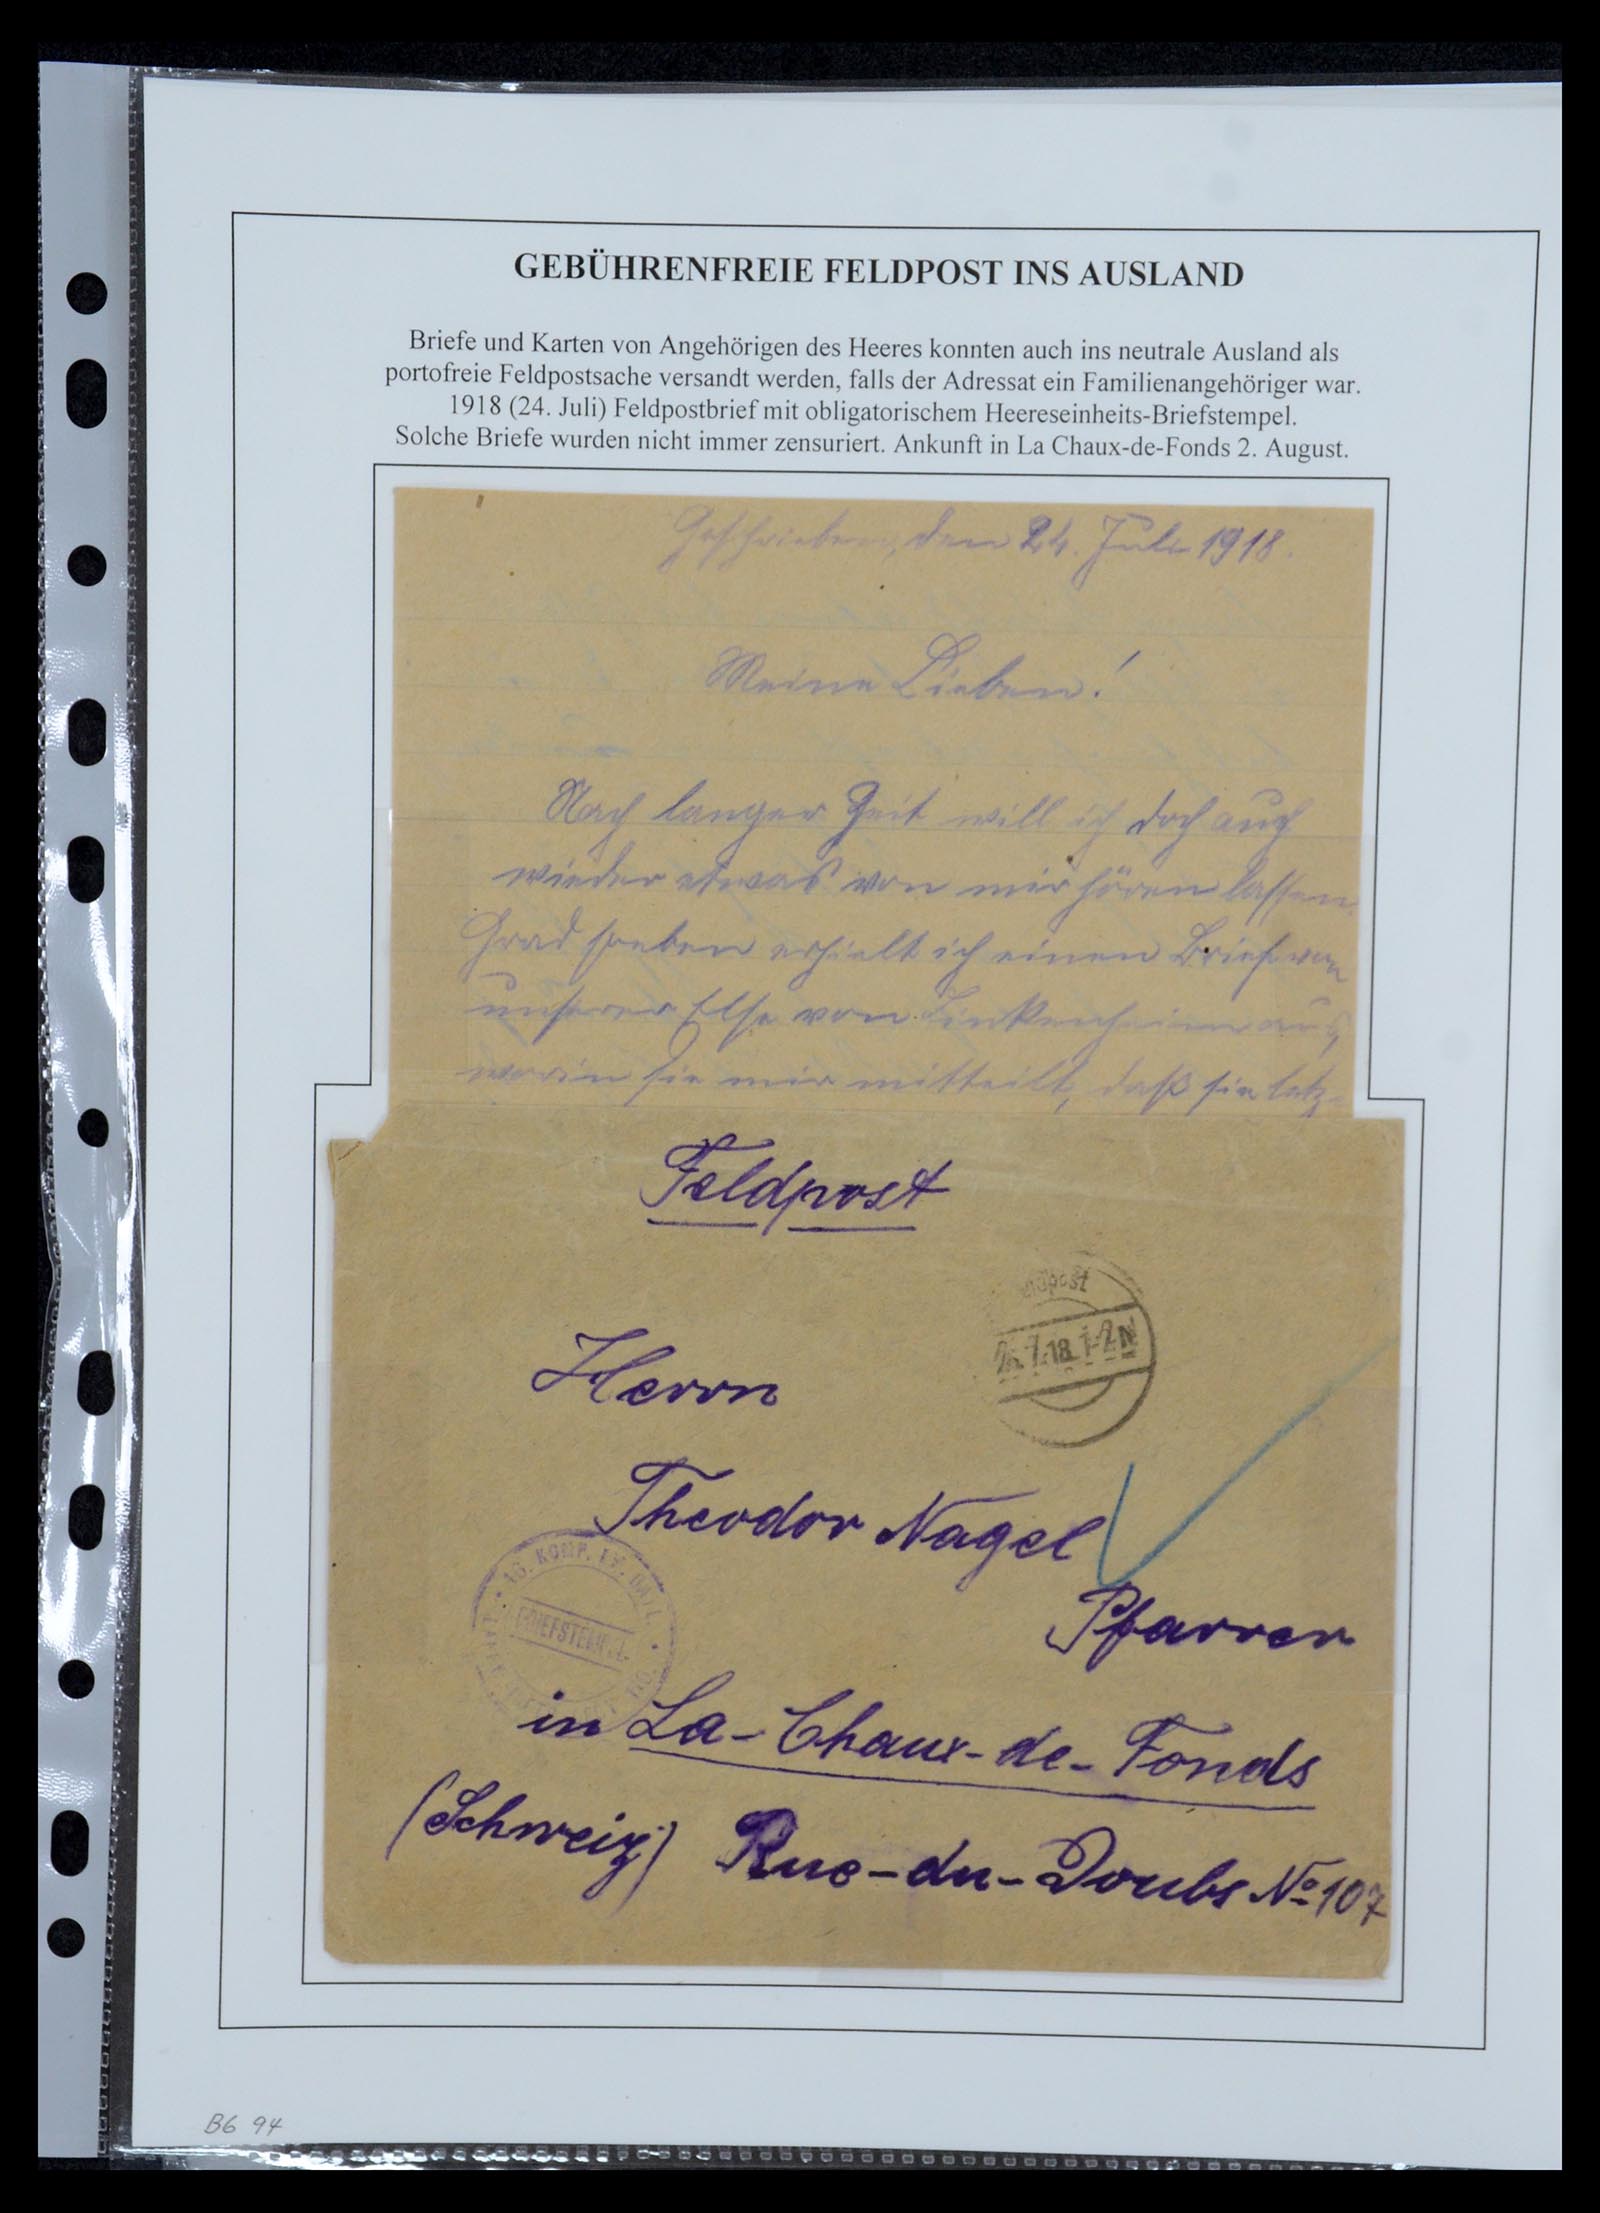 GEBÜHRENFREIE FELDPOST INS AUSLAND
Briefe und Karten von Angehörigen des Heeres konnten auch ins neutrale Ausland als
portofreie Feldpostsache versandt werden, falls der Adressat ein Familienangehöriger war.
1918 (24. Juli) Feldpostbrief mit obligatorischem Heereseinheits-Briefstempel.
Solche Briefe wurden nicht immer zensuriert. Ankunft in La Chaux-de-Fonds 2. August.
Geschrieben, den 24. Juli 1918.
Meine Lieben!
Nach langer Zeit will ich doch auch
wieder etwas von mir hören lassen.
Grad soeben erhielt ich einen Brief von
unserer Else von Linkenheim aus,
worin sie mir mitteilt, daß sie letz-
Feldpost
7.18. 1-2 N
Herrn
Theodor Nagel
10. KOMP.
BRIEFSTEMPEL
Pfarrer
in La-Chaux-de-Fonds
(Schweiz) Rue-du-Doubs No 107
B6 94